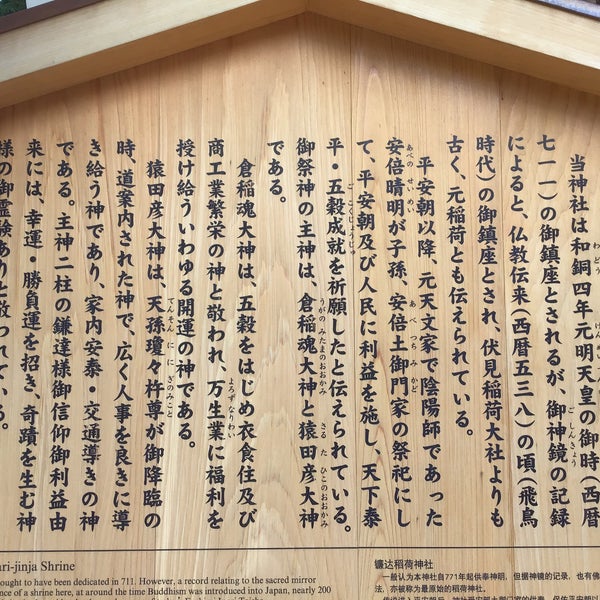 当神社は和銅四年元明天皇の御時(西暦
七一一)の御鎮座とされるが、御神鏡の記録
によると、仏教伝来(西暦五三八)の頃(飛鳥
時代)の御鎮座とされ、伏見稲荷大社よりも
古く、元稲荷とも伝えられている。
平安朝以降、元天文家で陰陽師であった
安倍晴明が子孫、安倍土御門家の祭祀にし
て、平安朝及び人民に利益を施し、天下泰
平・五穀成就を祈願したと伝えられている。
御祭神の主神は、倉稲魂大神と猿田彦大神
である。
倉稲魂大神は、五穀をはじめ衣食住及び
商工業繁栄の神と敬われ、万生業に福利を
授け給ういわゆる開運の神である。
猿田彦大神は、天孫瓊々杵尊が御降臨の
時、道案内された神で、広く人事を良きに導
き給う神であり、家内安泰・交通導きの神
である。主神二柱の鎌達様御信仰御利益由
来には、幸運・勝負運を招き、奇蹟を生む神
様の御霊験ありと敬われている。
ari-jinja Shrine
ought to have been dedicated in 711. However, a record relating to the sacred mirror
nce of a shrine here, at around the time Buddhism was introduced into Japan, nearly 200
镰达稻荷神社
一般认为本神社自771年起供奉神明，但据神镜的记录，也有佛
法，亦被称为最原始的稻荷神社。